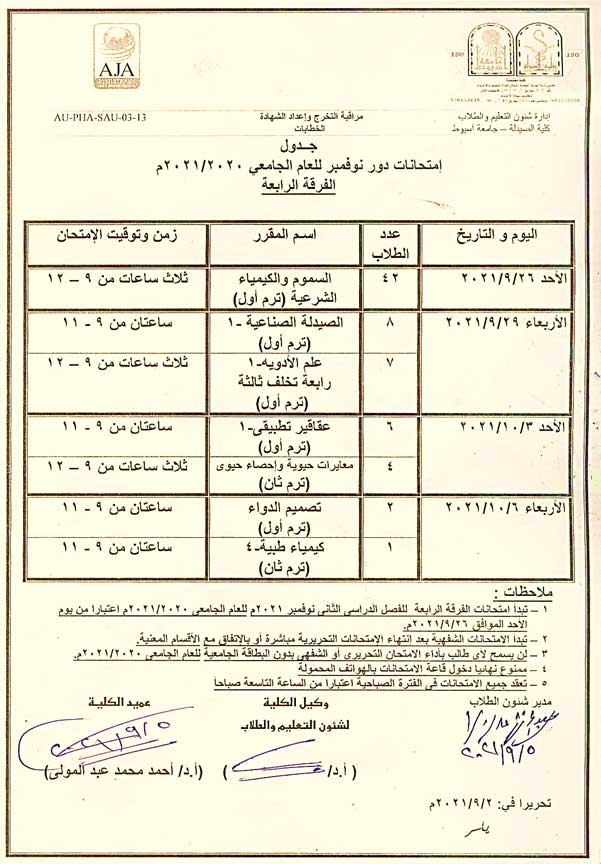 AJA
ISO
ISO
إدارة شئون التعليم والطلاب
مراقبة التخرج وإعداد الشهادة
AU-PHA-SAU-03-13
كلية الصيدلة – جامعة أسيوط
الخطابات
جدول
إمتحانات دور نوفمبر للعام الجامعي ٢٠٢١/٢٠٢٠م
الفرقة الرابعة
اليوم و التاريخ
عدد الطلاب
اسم المقرر
زمن وتوقيت الإمتحان
الأحد ٢٠٢١/٩/٢٦
٤٢
السموم والكيمياء
الشرعية (ترم أول)
ثلاث ساعات من ٩ – ١٢
الأربعاء ٢٠٢١/٩/٢٩
٨
الصيدلة الصناعية -١
(ترم أول)
ساعتان من ٩ - ١١
٧
علم الأدوية-١
رابعة تخلف ثالثة
(ترم أول)
ثلاث ساعات من ٩ - ١٢
الأحد ٢٠٢١/١٠/٣
٦
عقاقير تطبيقى-١
(ترم أول)
ساعتان من ٩ - ١١
٤
معايرات حيوية وإحصاء حيوى
(ترم ثان)
ثلاث ساعات من ٩ - ١٢
الأربعاء ٢٠٢١/١٠/٦
٢
تصميم الدواء
(ترم أول)
ساعتان من ٩ - ١١
١
كيمياء طبية-٤
(ترم ثان)
ساعتان من ٩ - ١١
ملاحظات :
١ – تبدأ امتحانات الفرقة الرابعة للفصل الدراسى الثانى نوفمبر ٢٠٢١م للعام الجامعى ٢٠٢١/٢٠٢٠م اعتبارا من يوم
الاحد الموافق ٢٠٢١/٩/٢٦م.
٢ – تبدأ الامتحانات الشفهية بعد إنتهاء الامتحانات التحريرية مباشرة أو بالاتفاق مع الأقسام المعنية.
٣ – لن يسمح لاى طالب بأداء الامتحان التحريرى أو الشفهى بدون البطاقة الجامعية للعام الجامعى ٢٠٢١/٢٠٢٠م.
٤ – ممنوع نهائيا دخول قاعة الامتحانات بالهواتف المحمولة
٥ – تعقد جميع الامتحانات فى الفترة الصباحية اعتبارا من الساعة التاسعة صباحاً
مدير شئون الطلاب
وكيل الكلية
عميد الكلية
لشئون التعليم والطلاب
٢٠٢١/٩/٥
٢٠٢١/٩/٥
(أ.د/ )
(أ.د/ أحمد محمد عبد المولى)
تحريرا في: ٢٠٢١/٩/٢م
ياسر